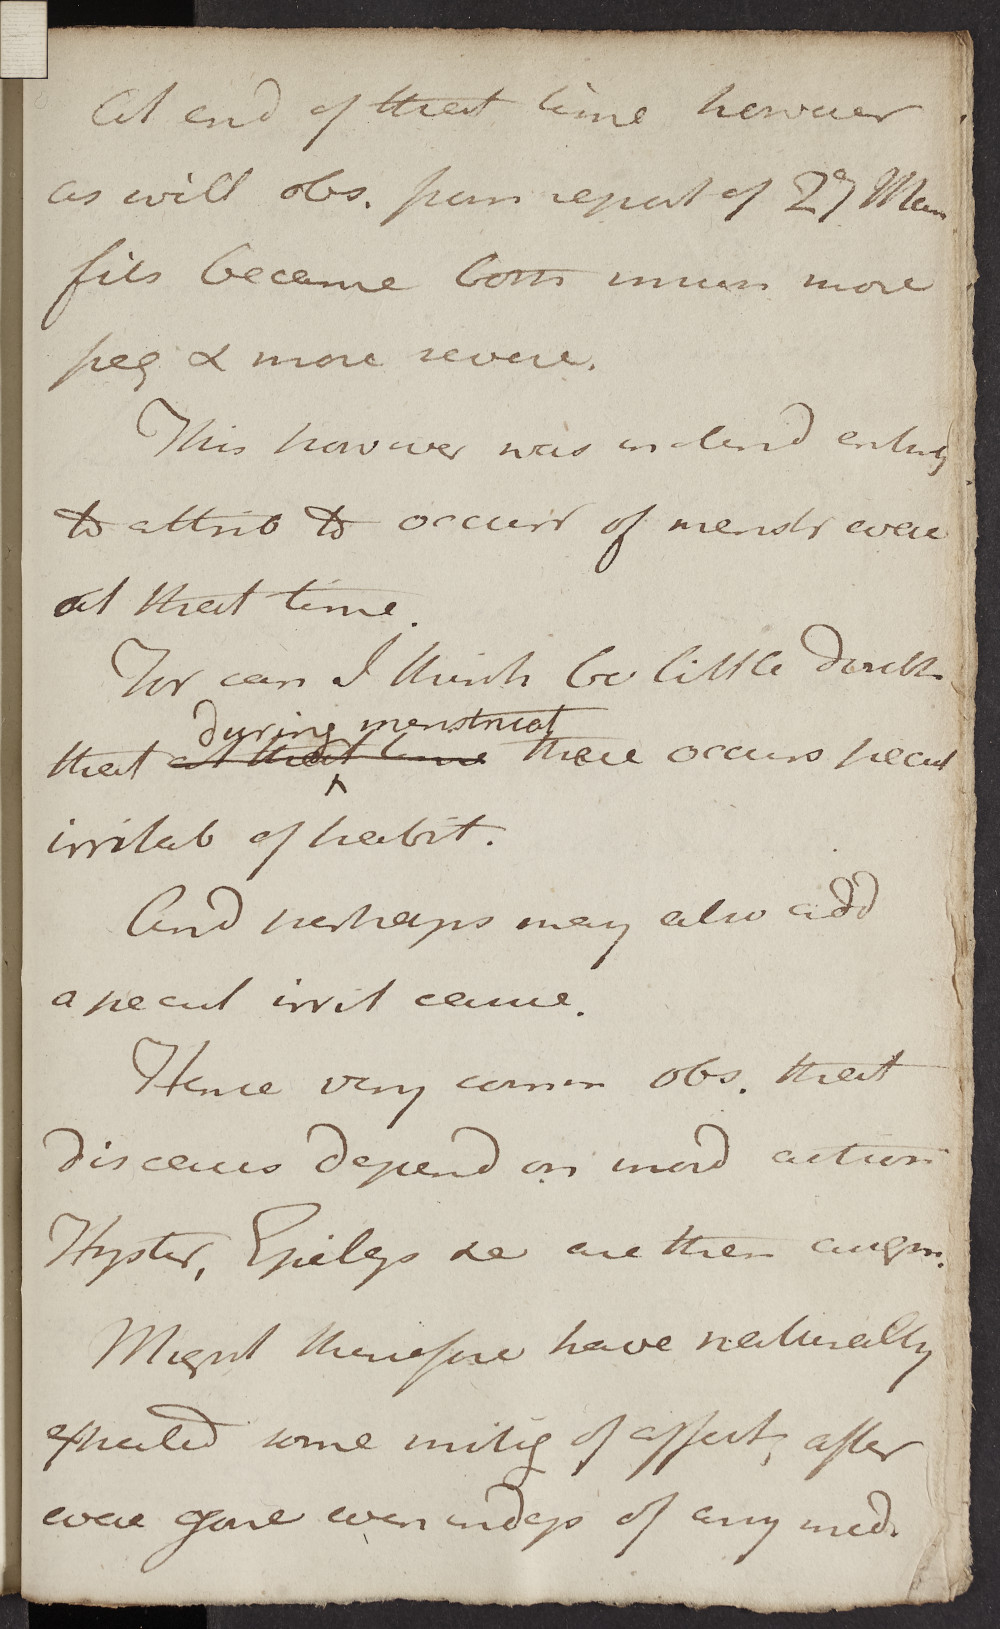 At end of that time however
as will obs. from report of 27 Mar
fits became both much more
freq & more severe.
This however was inclind entirely
to attrib to occurr of menstr evac
at that time.
For can I think be little doubt
that during menstruat ~~at that time~~ there occurs pecul
irritab of habit.
And perhaps may also add
a pecul irrit cause.
Hence very comm obs. that
diseases depend on morb action
Hyster, Epileps &c are then augm.
Might therefore have naturally
expected some mitig of affect, after
evac gone even indep of any med.